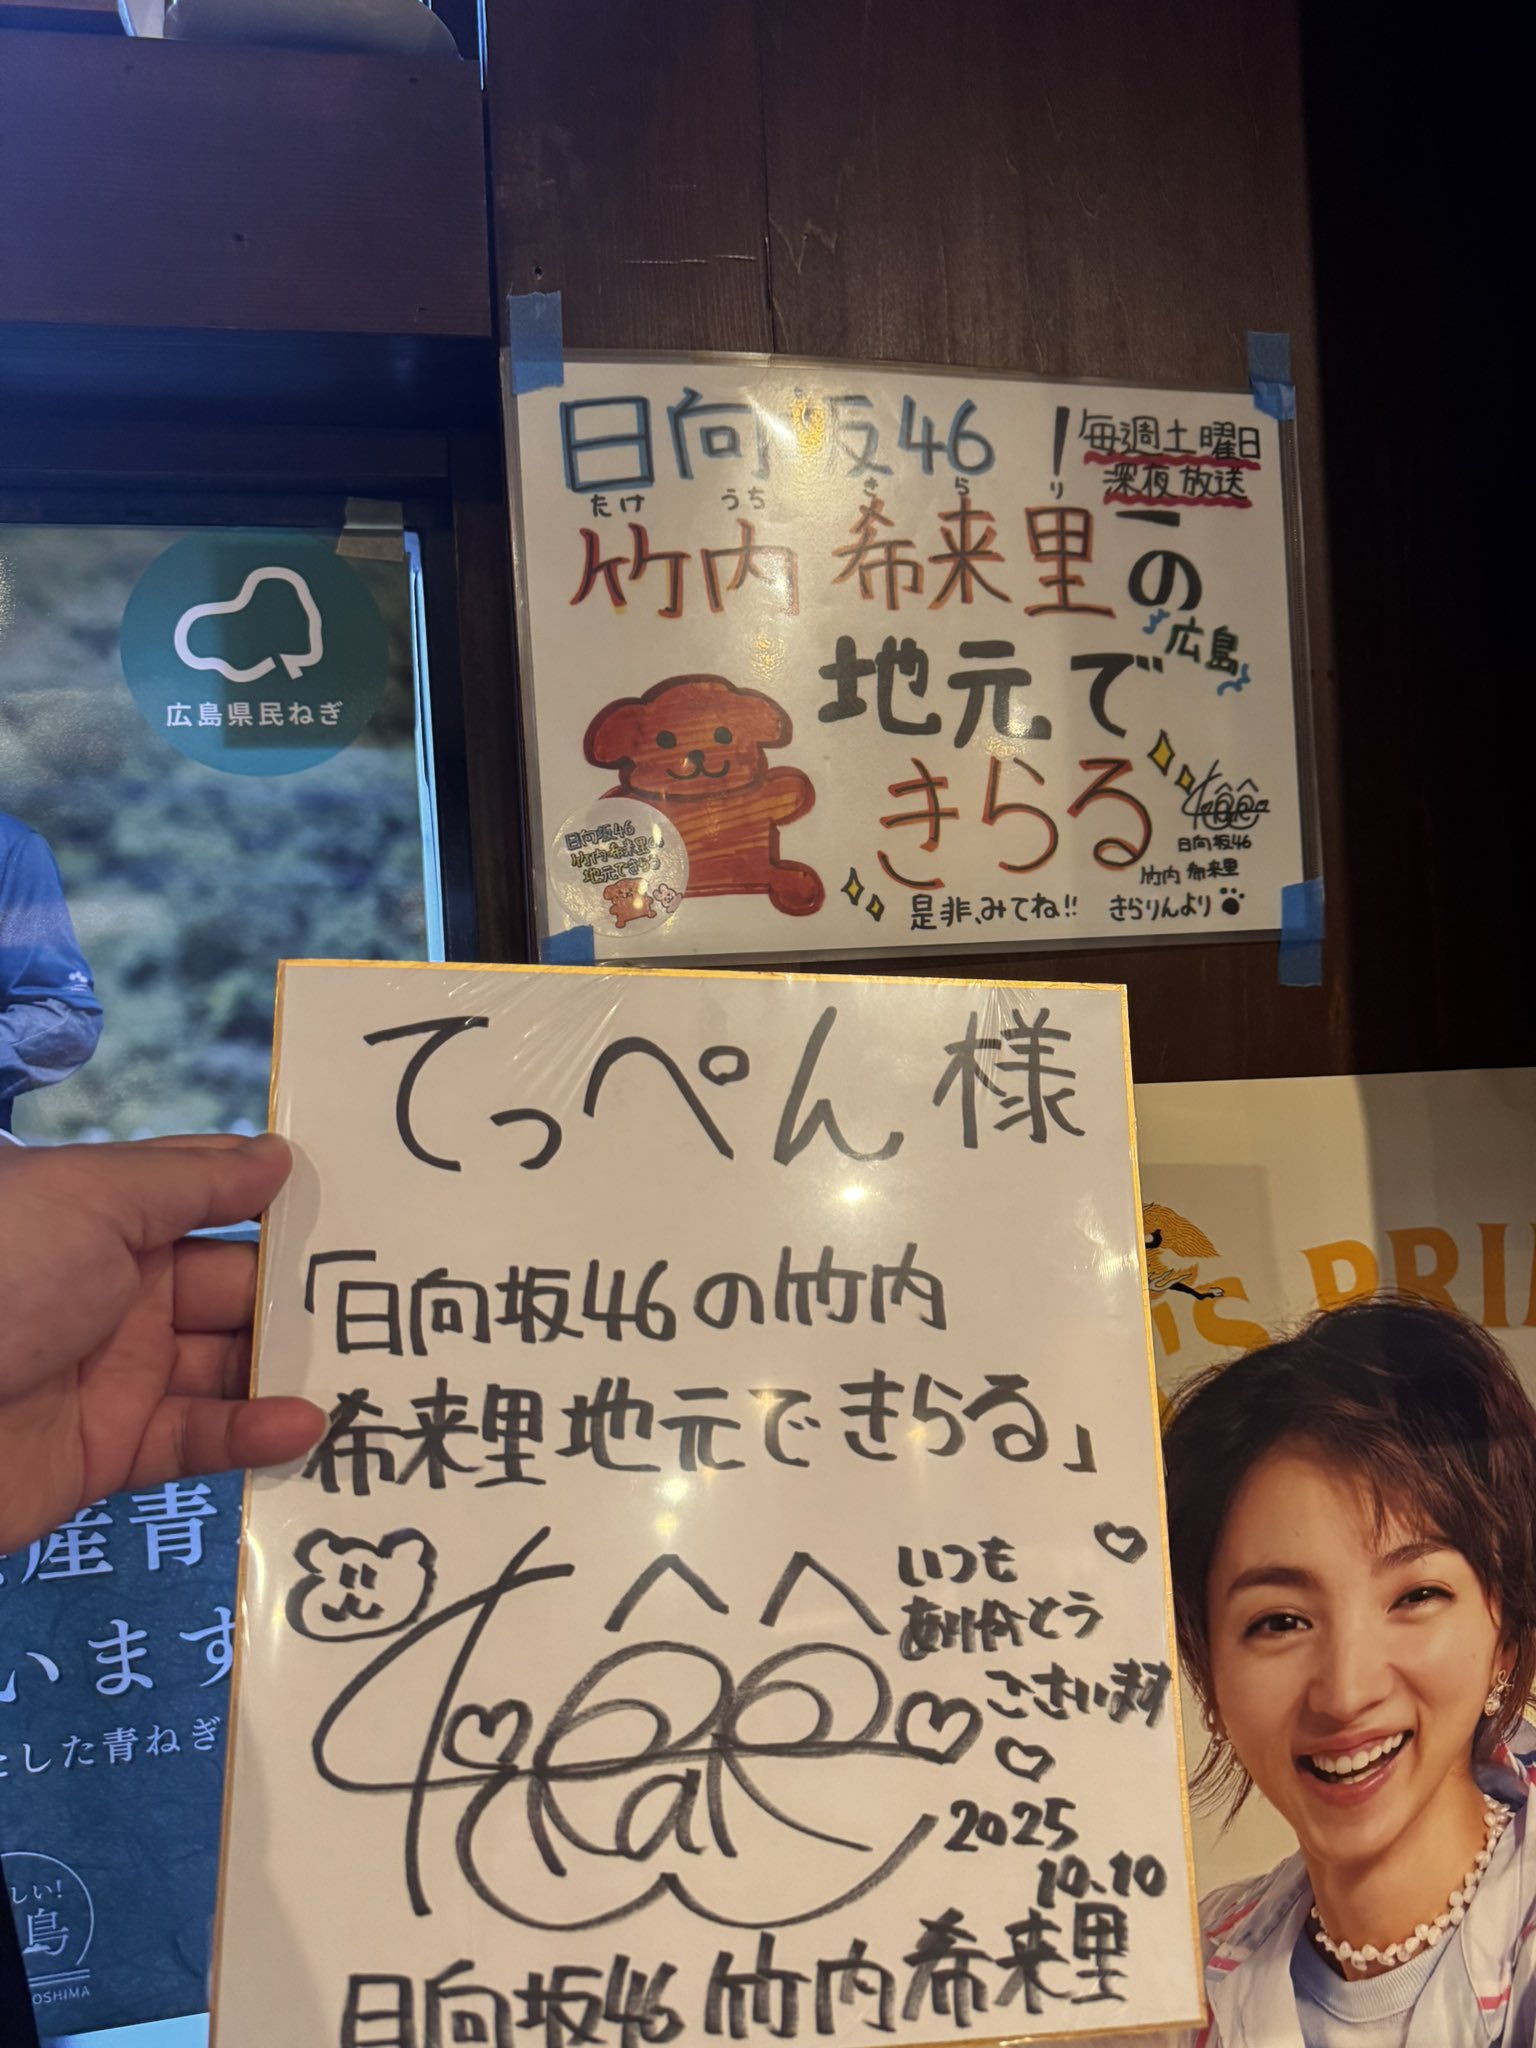 広島県民ねぎ
日向坂46
毎週土曜日
深夜放送
たけ うち き ら り
竹内 希来里の
広島
地元で
きらる
日向坂46
竹内 希来里
是非、みてね!! きらりんより
日向坂46
竹内希来里の
地元できらる
てっぺん様
「日向坂46の竹内
希来里地元できらる」
いつも
ありがとう
ございます
2025
10.10
日向坂46 竹内希来里
産青
います
した青ねぎ
しい!
島
OSHIMA
PRI